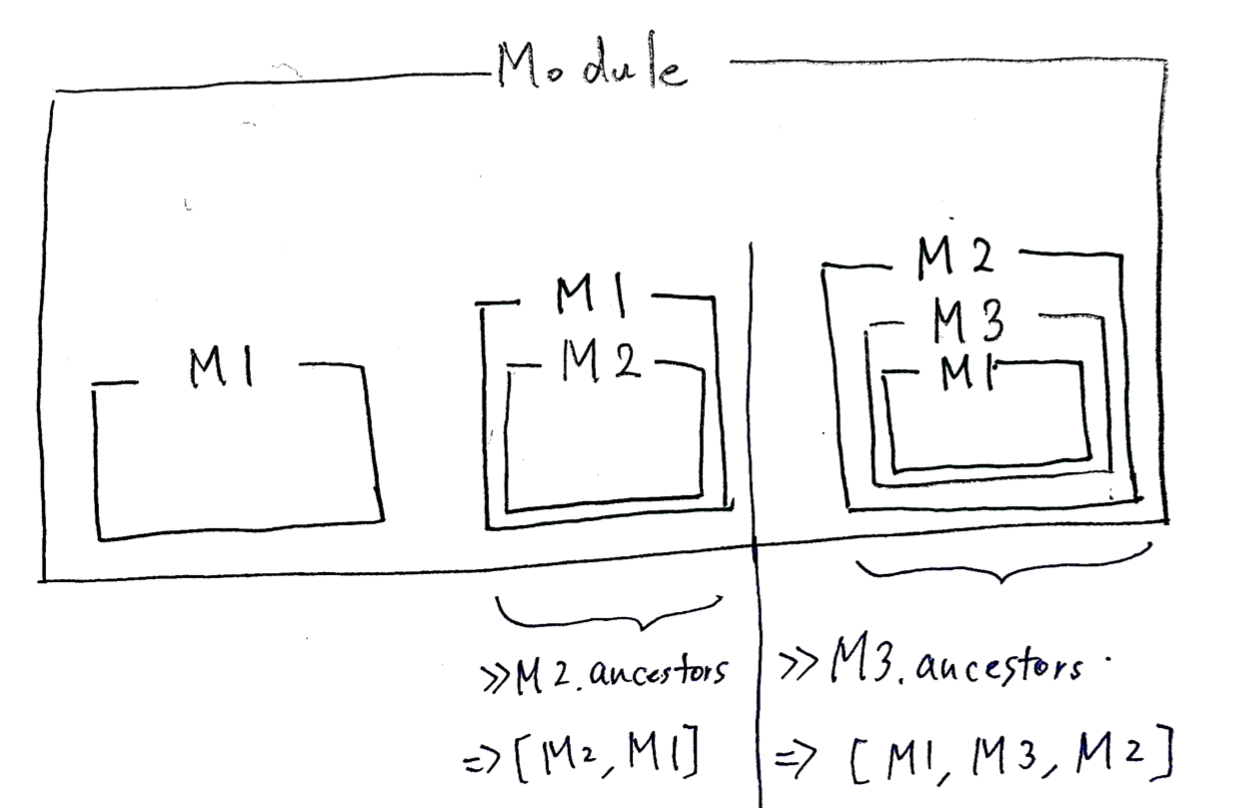 Module
M1
M1
M2
M2
M3
M1
>>M2.ancestors
=> [M2, M1]
>>M3.ancestors
=> [M1, M3, M2]